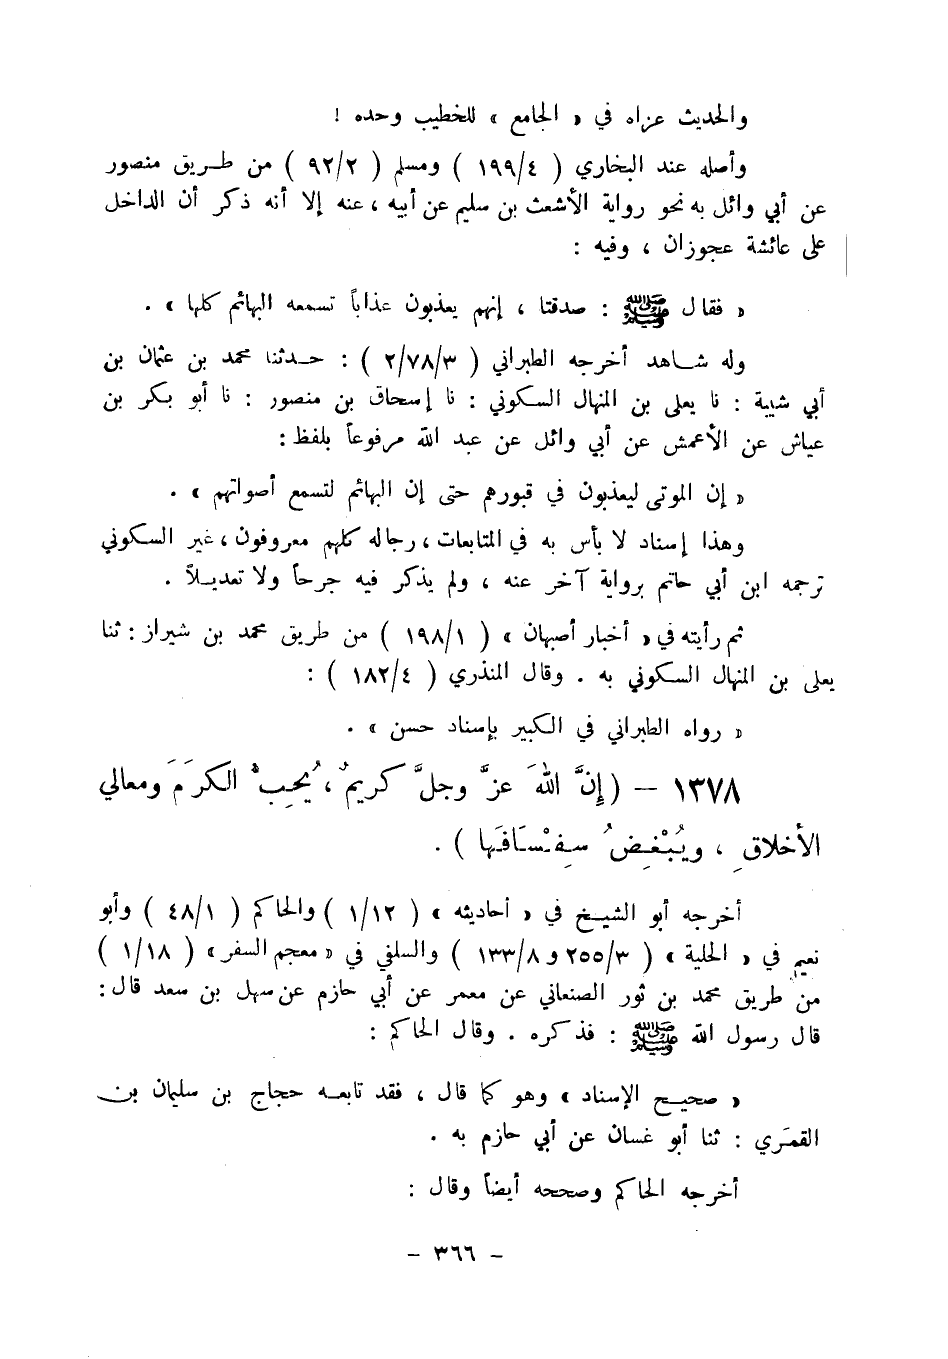 والحديث عزاه في « الجامع » للخطيب وحده !
وأصله عند البخاري ( ١٩٩/٤ ) ومسلم ( ٩٢/٢ ) من طريق منصور
عن أبي وائل به نحو رواية الأشعث بن سليم عن أبيه ، عنه إلا أنه ذكر أن الداخل
على عائشة عجوزان ، وفيه :
« فقال ﷺ : صدقتا ، إنهم يعذبون عذاباً تسمعه البهائم كلها » .
وله شاهد أخرجه الطبراني ( ٢/٧٨/٣ ) : حدثنا محمد بن عثمان بن
أبي شيبة : نا يعلى بن المنهال السكوني : نا إسحاق بن منصور : نا أبو بكر بن
عياش عن الأعمش عن أبي وائل عن عبد الله مرفوعاً بلفظ :
« إن الموتى ليعذبون في قبورهم حتى إن البهائم لتسمع أصواتهم » .
وهذا إسناد لا بأس به في المتابعات ، رجاله كلهم معروفون ، غير السكوني
ترجمه ابن أبي حاتم برواية آخر عنه ، ولم يذكر فيه جرحاً ولا تعديلاً .
ثم رأيته في « أخبار أصبهان » ( ١٩٨/١ ) من طريق محمد بن شيراز : ثنا
يعلى بن المنهال السكوني به . وقال المنذري ( ١٨٢/٤ ) :
« رواه الطبراني في الكبير بإسناد حسن » .
١٣٧٨ – ( إِنَّ اللهَ عزَّ وجلَّ كريمٌ ، يُحِبُّ الكرَمَ ومعالي
الأخلاقِ ، ويُبْغِضُ سِفْسَافَها ) .
أخرجه أبو الشيخ في « أحاديثه » ( ١/١٢ ) والحاكم ( ٤٨/١ ) وأبو
نعيم في « الحلية » ( ٢٥٥/٣ و ١٣٣/٨ ) والسلفي في « معجم السفر » ( ١/١٨ )
من طريق محمد بن ثور الصنعاني عن معمر عن أبي حازم عن سهل بن سعد قال :
قال رسول الله ﷺ : فذكره . وقال الحاكم :
« صحيح الإسناد » وهو كما قال ، فقد تابعه حجاج بن سليمان بن
القمَري : ثنا أبو غسان عن أبي حازم به .
أخرجه الحاكم وصححه أيضاً وقال :
– ٣٦٦ –